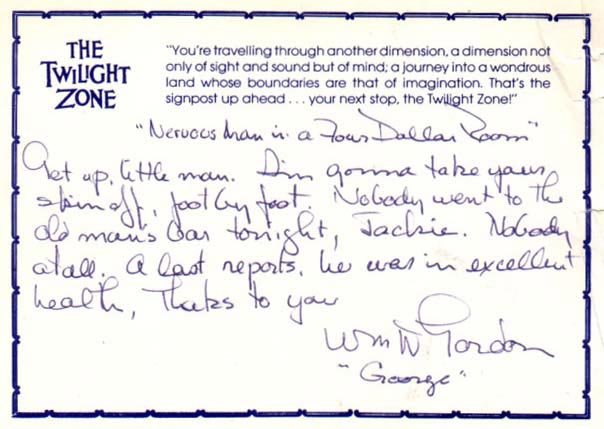 THE
TWILIGHT
ZONE
"You're travelling through another dimension, a dimension not
only of sight and sound but of mind; a journey into a wondrous
land whose boundaries are that of imagination. That's the
signpost up ahead . . . your next stop, the Twilight Zone!"
"Nervous Man in a Four Dollar Room"
Get up, little man. I'm gonna take your
skin off, foot by foot. Nobody went to the
old man's bar tonight, Jackie. Nobody
at all. A last reports, he was in excellent
health, Thaks to you
Wm D Gordon
"George"